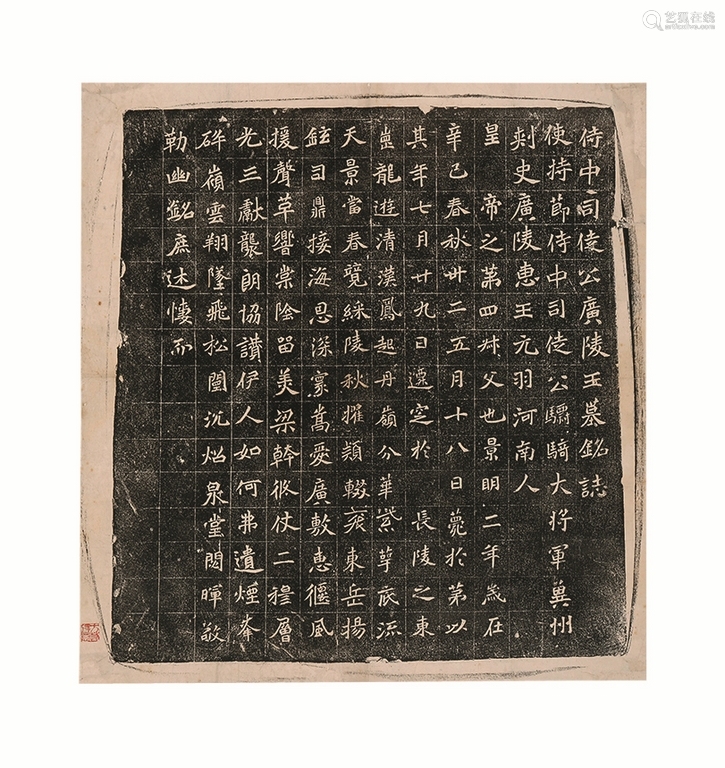 侍中司徒公廣陵王墓銘誌
使持節侍中司徒公驃騎大將軍冀州
刺史廣陵惠王元羽河南人
皇　帝之第四叔父也景明二年歲在
辛巳春秋卅二五月十八日薨於第以
其年七月廿九日遷窆於　長陵之東
崗龍遊清漢鳳起丹嶺分華紫萼底流
天景當春競綵陵秋擢穎輟袞東岳揚
鉉司鼎接海思深寮嵩愛廣敷惠偃風
援聲草響棠陰留美梁幹徂仗二禮層
光三獻襲朗協讚伊人如何弗遺煙峯
碎嶺雲翔墜飛松闈沉炤泉堂閟暉敬
勒幽銘庶述悽而
艺狐在线
artfoxlive.com